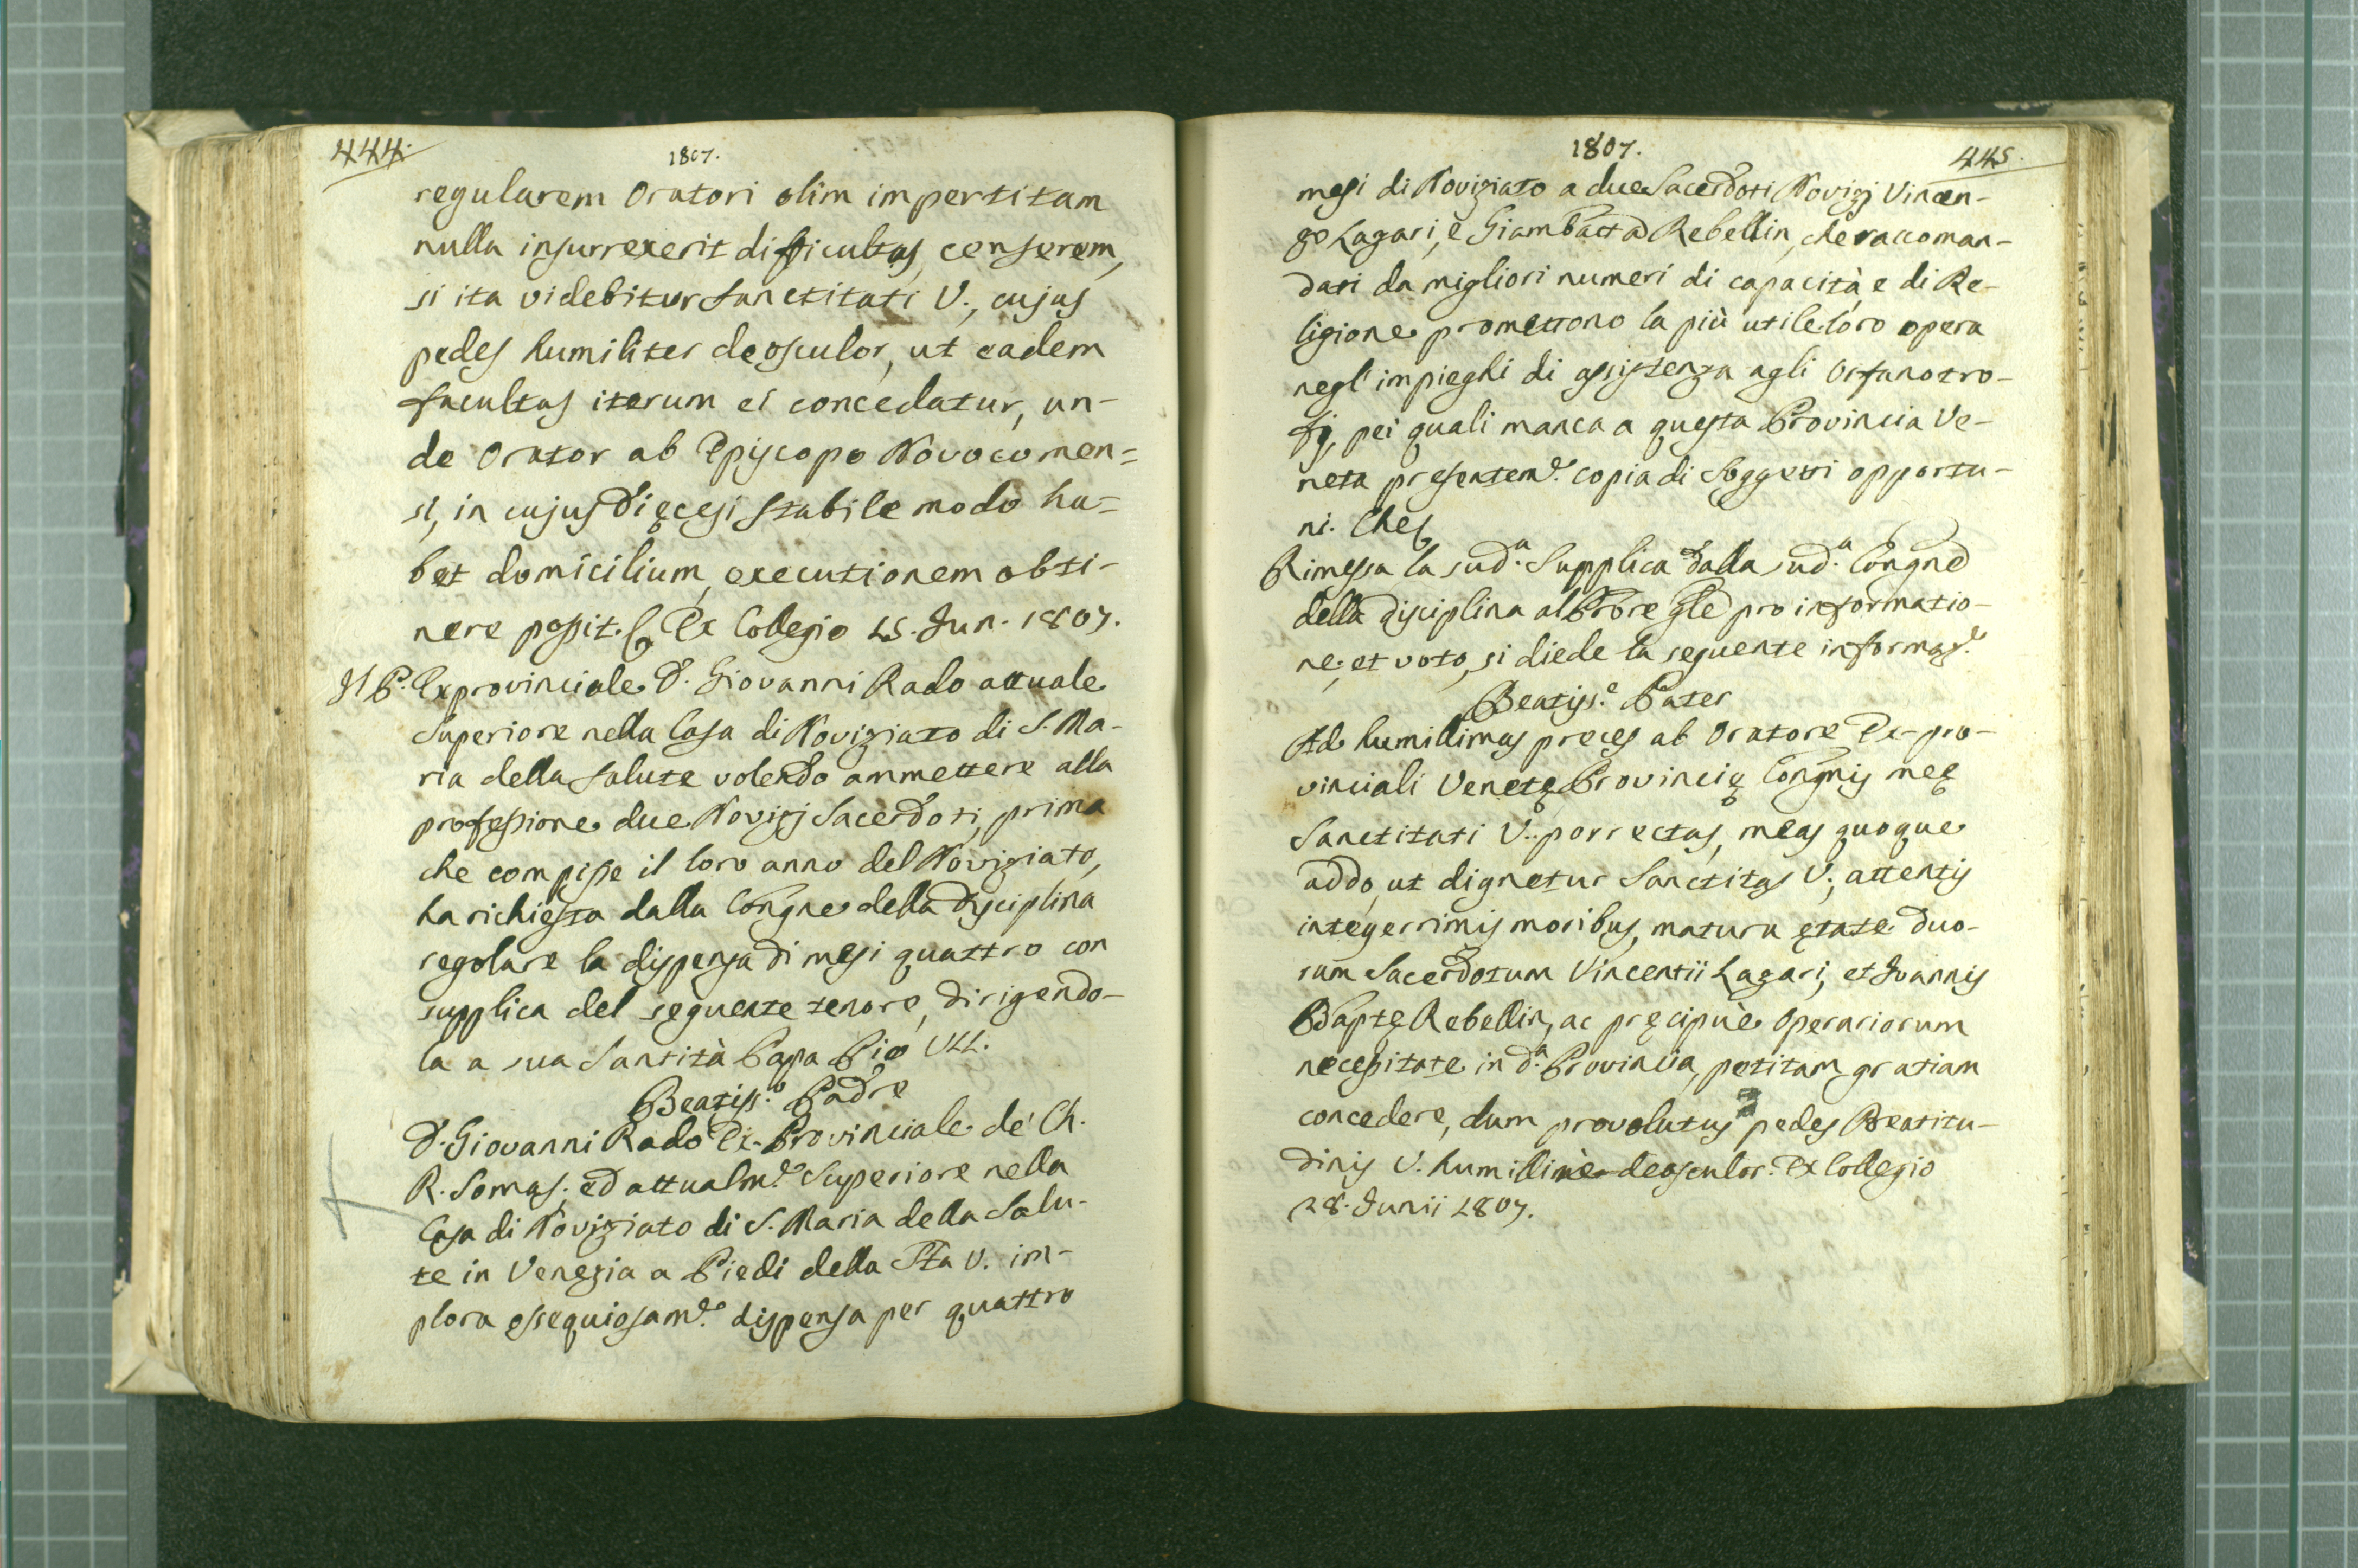 444.
1807.
regularem Oratori olim impertitam
nulla insurrexerit difficultas, censerem,
si ita videbitur Sanctitati V., cujus
pedes humiliter deosculor, ut eadem
facultas iterum ei concedatur, un-
de Orator ab Episcopo Novocomen=
si, in cujus Dięcesi stabile modo ha=
bet domicilium, executionem obti-
nere possit. Ex Collegio 15. Jun. 1807.
Il P. Exprovinciale D. Giovanni Rado attuale
Superiore nella Casa di Noviziato di S. Ma-
ria della Salute volendo ammettere alla
professione due Novizj Sacerdoti, prima
che compisse il loro anno del Noviziato,
ha richiesta dalla Congne della Disciplina
regolare la dispensa di mesi quattro con
supplica del seguente tenore, dirigendo-
la a sua Santità Papa Pio VII.
Beatiss.o Padre
D. Giovanni Rado Ex-Provinciale de' Ch.
R. Somas. ed attualm.e Superiore nella
Casa di Noviziato di S. Maria della Salu-
te in Venezia a Piedi della Sta V. im-
plora ossequiosam.e dispensa per quattro
1807.
445.
mesi di Noviziato a due Sacerdoti Novizj Vincen-
zo Lagari, e Giambatta Rebellin, che raccoman-
dati da migliori numeri di capacità e di Re-
ligione promettono la più utile loro opera
negl' impieghi di assistenza agli Orfanotro-
fj, pei quali manca a questa Provincia Ve-
neta presentem.e copia di Soggetti opportu-
ni. Che
Rimessa la sud.a Supplica dalla sud.a Congne
della disciplina al Prore Gle pro informatio-
ne, et voto, si diede la seguente informaz.e
Beatiss.e Pater
Ad humillimas preces ab Oratore Ex-pro-
vinciali Venetę Provincię Congnis meę
Sanctitati V. porrectas, meas quoque
addo, ut dignetur Sanctitas V., attentis
integerrimis moribus, matura ętate duo-
rum Sacerdotum Vincentii Lagari, et Joannis
Baptę Rebellin, ac pręcipuè Operariorum
necessitate in d.a Provincia, petitam gratiam
concedere, dum provolutus pedes Beatitu-
dinis V. humillimè deosculor. Ex Collegio
28. Junii 1807.